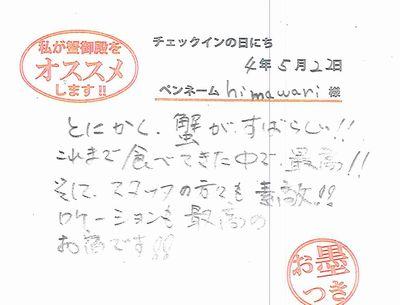 私が蟹御殿を
オススメ
します!!
チェックインの日にち
4年5月22日
ペンネーム himawari 様
とにかく、蟹がすばらしい!!
これまで食べてきた中で、最高!!
そして、スタッフの方々も素敵!!
ロケーションも最高の
お宿です!!
お墨
つき